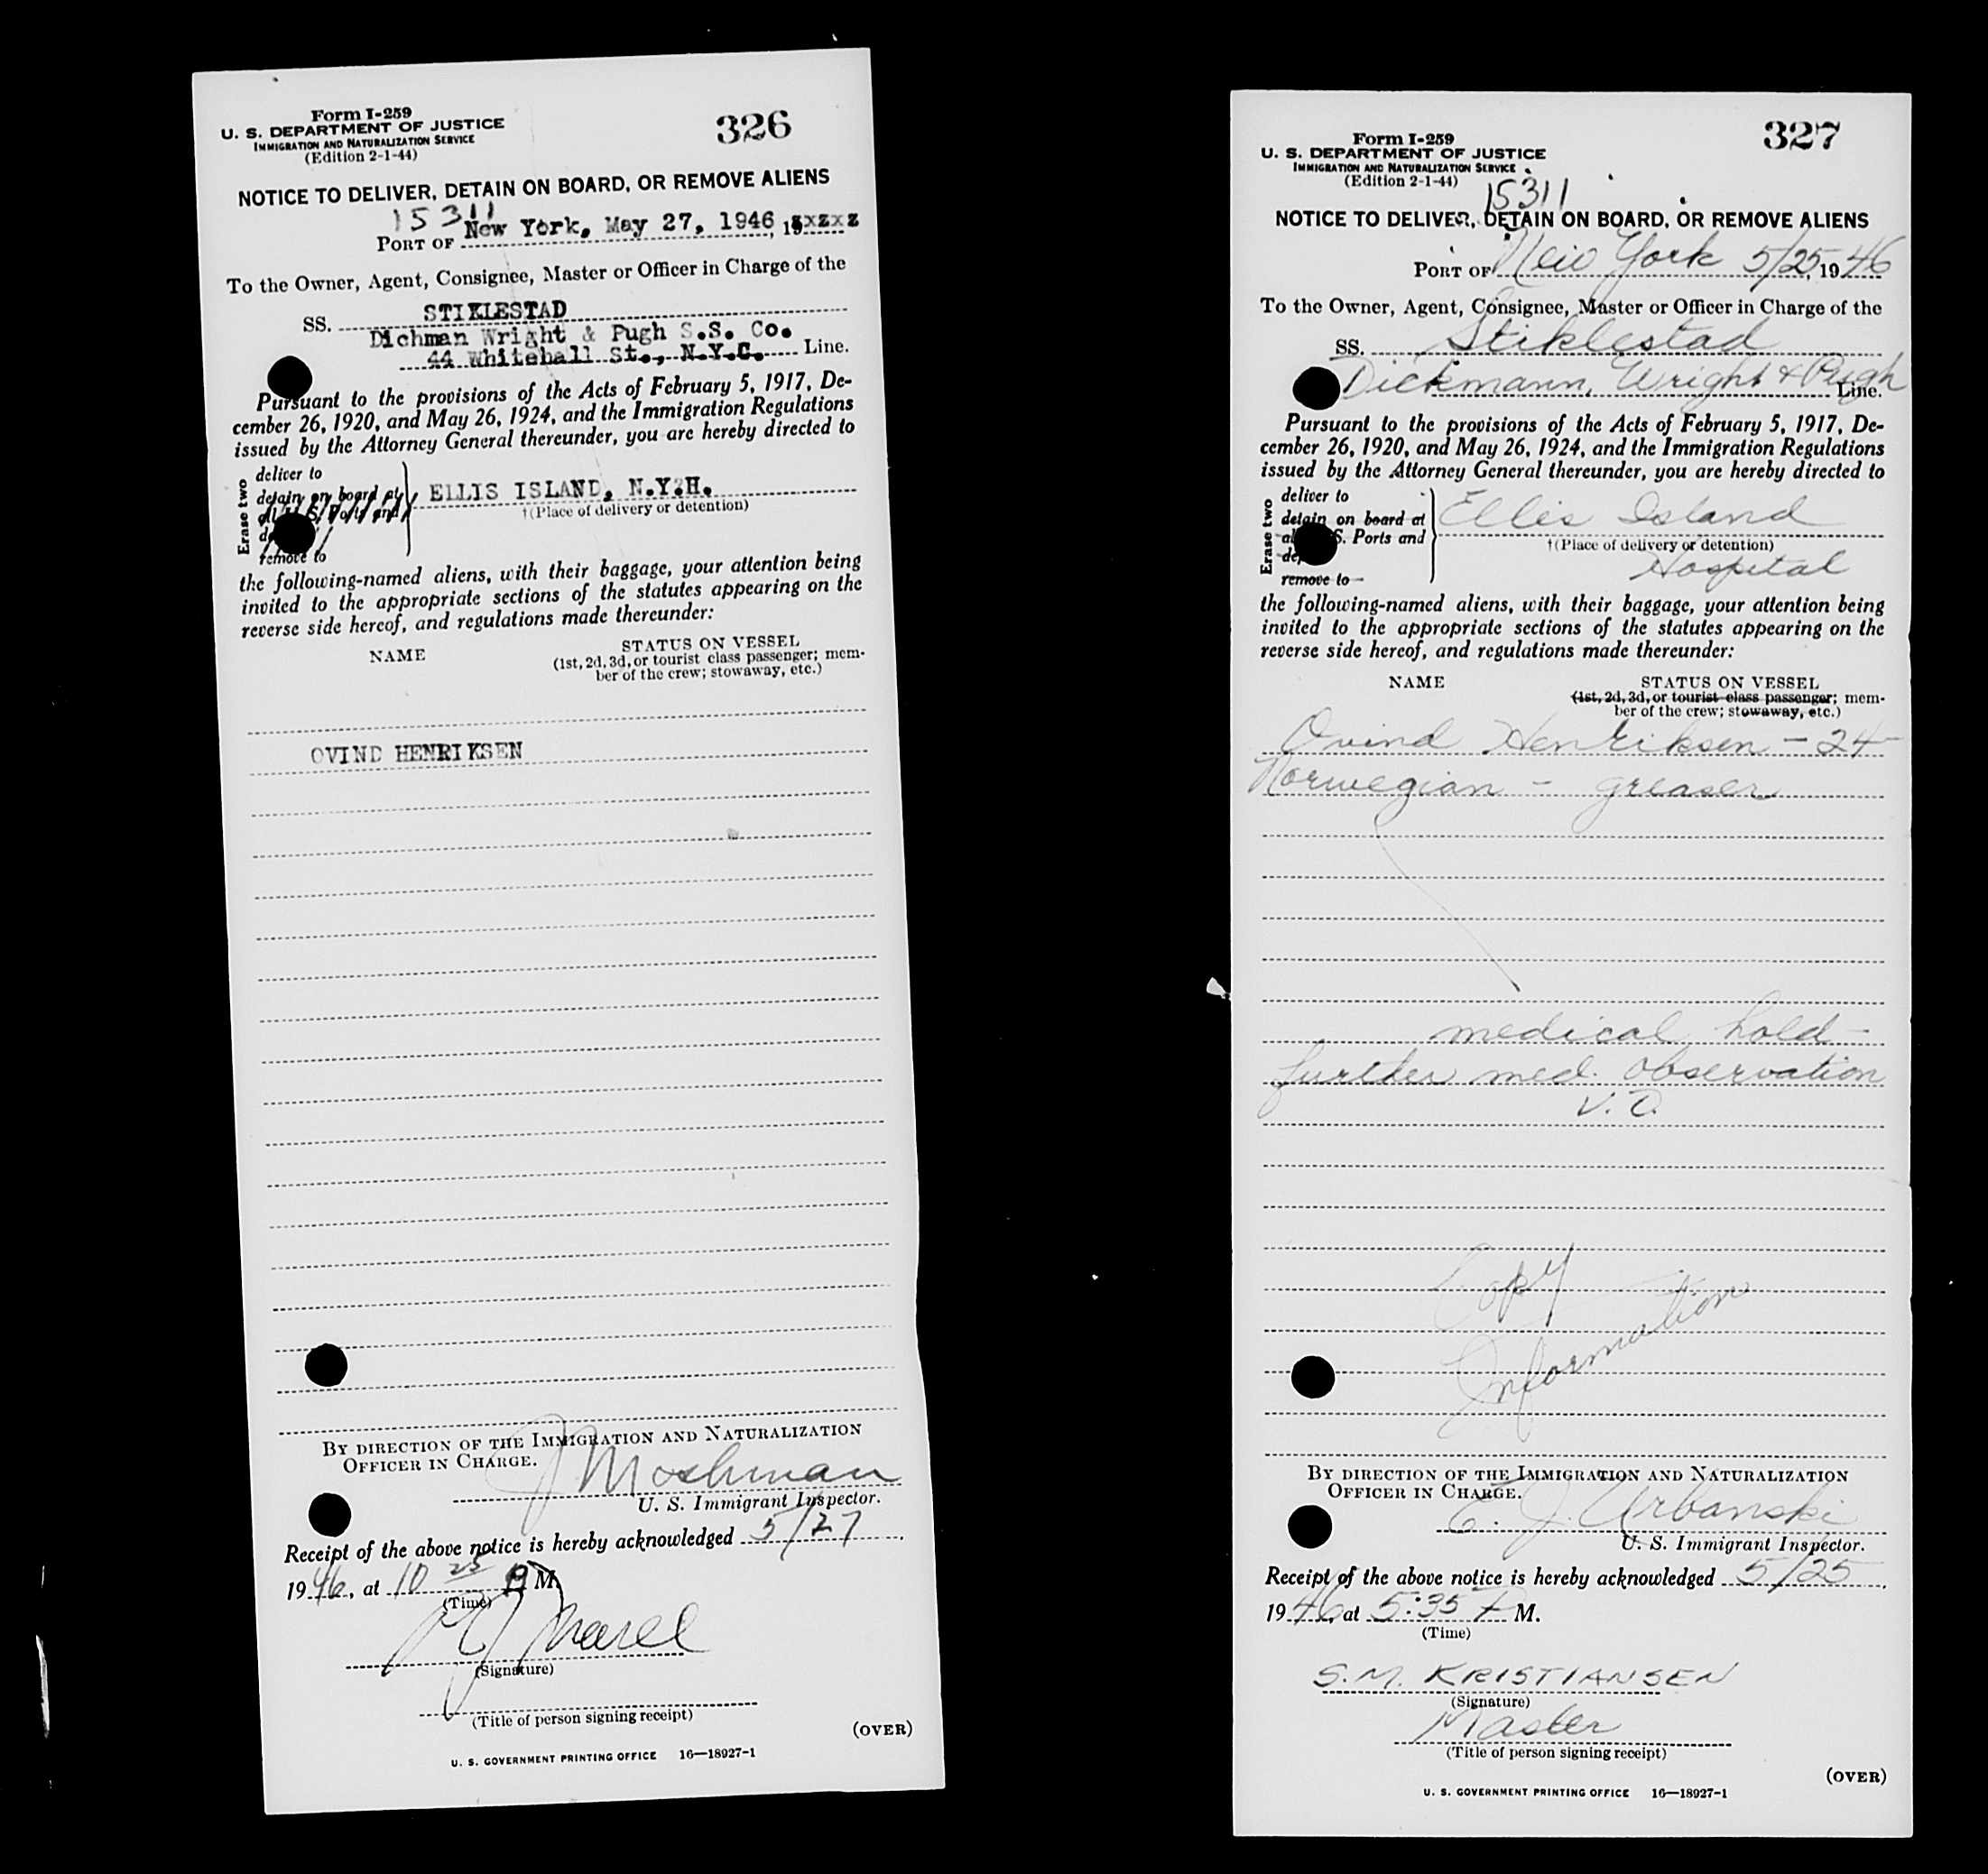 Form I-259
U. S. DEPARTMENT OF JUSTICE
IMMIGRATION AND NATURALIZATION SERVICE
(Edition 2-1-44)
326
NOTICE TO DELIVER, DETAIN ON BOARD, OR REMOVE ALIENS
15311
PORT OF New York, May 27, 1946, 19xzxz
To the Owner, Agent, Consignee, Master or Officer in Charge of the
SS. STIKLESTAD
Dichman Wright & Pugh S.S. Co.
44 Whitehall St., N.Y.C. Line.
Pursuant to the provisions of the Acts of February 5, 1917, De-
cember 26, 1920, and May 26, 1924, and the Immigration Regulations
issued by the Attorney General thereunder, you are hereby directed to
Erase two
deliver to
detain on board at
all U. S. Ports and
remove to
ELLIS ISLAND, N.Y.H.
†(Place of delivery or detention)
the following-named aliens, with their baggage, your attention being
invited to the appropriate sections of the statutes appearing on the
reverse side hereof, and regulations made thereunder:
NAME
STATUS ON VESSEL
(1st, 2d, 3d, or tourist class passenger; mem-
ber of the crew; stowaway, etc.)
OVIND HENRIKSEN
BY DIRECTION OF THE IMMIGRATION AND NATURALIZATION
OFFICER IN CHARGE.
J Moshman
U. S. Immigrant Inspector.
Receipt of the above notice is hereby acknowledged 5/27
1946, at 10 25 M.
(Time)
(Signature)
(Title of person signing receipt)
(OVER)
U. S. GOVERNMENT PRINTING OFFICE 16—18927-1
Form I-259
U. S. DEPARTMENT OF JUSTICE
IMMIGRATION AND NATURALIZATION SERVICE
(Edition 2-1-44)
327
15311
NOTICE TO DELIVER, DETAIN ON BOARD, OR REMOVE ALIENS
PORT OF New York 5/25, 1946
To the Owner, Agent, Consignee, Master or Officer in Charge of the
SS. Stiklestad
Dickmann, Wright & Pugh Line.
Pursuant to the provisions of the Acts of February 5, 1917, De-
cember 26, 1920, and May 26, 1924, and the Immigration Regulations
issued by the Attorney General thereunder, you are hereby directed to
Erase two
deliver to
detain on board at
S. Ports and
remove to
Ellis Island
†(Place of delivery or detention)
Hospital
the following-named aliens, with their baggage, your attention being
invited to the appropriate sections of the statutes appearing on the
reverse side hereof, and regulations made thereunder:
NAME
STATUS ON VESSEL
(1st, 2d, 3d, or tourist class passenger; mem-
ber of the crew; stowaway, etc.)
Ovind Henriksen - 24-
Norwegian - greaser
medical hold -
further med. observation
V. D.
Copy
Information
BY DIRECTION OF THE IMMIGRATION AND NATURALIZATION
OFFICER IN CHARGE.
E. J. Urbanski
U. S. Immigrant Inspector.
Receipt of the above notice is hereby acknowledged 5/25
1946, at 5:35 M.
(Time)
S.M. KRISTIANSEN
(Signature)
Master
(Title of person signing receipt)
(OVER)
U. S. GOVERNMENT PRINTING OFFICE 16—18927-1